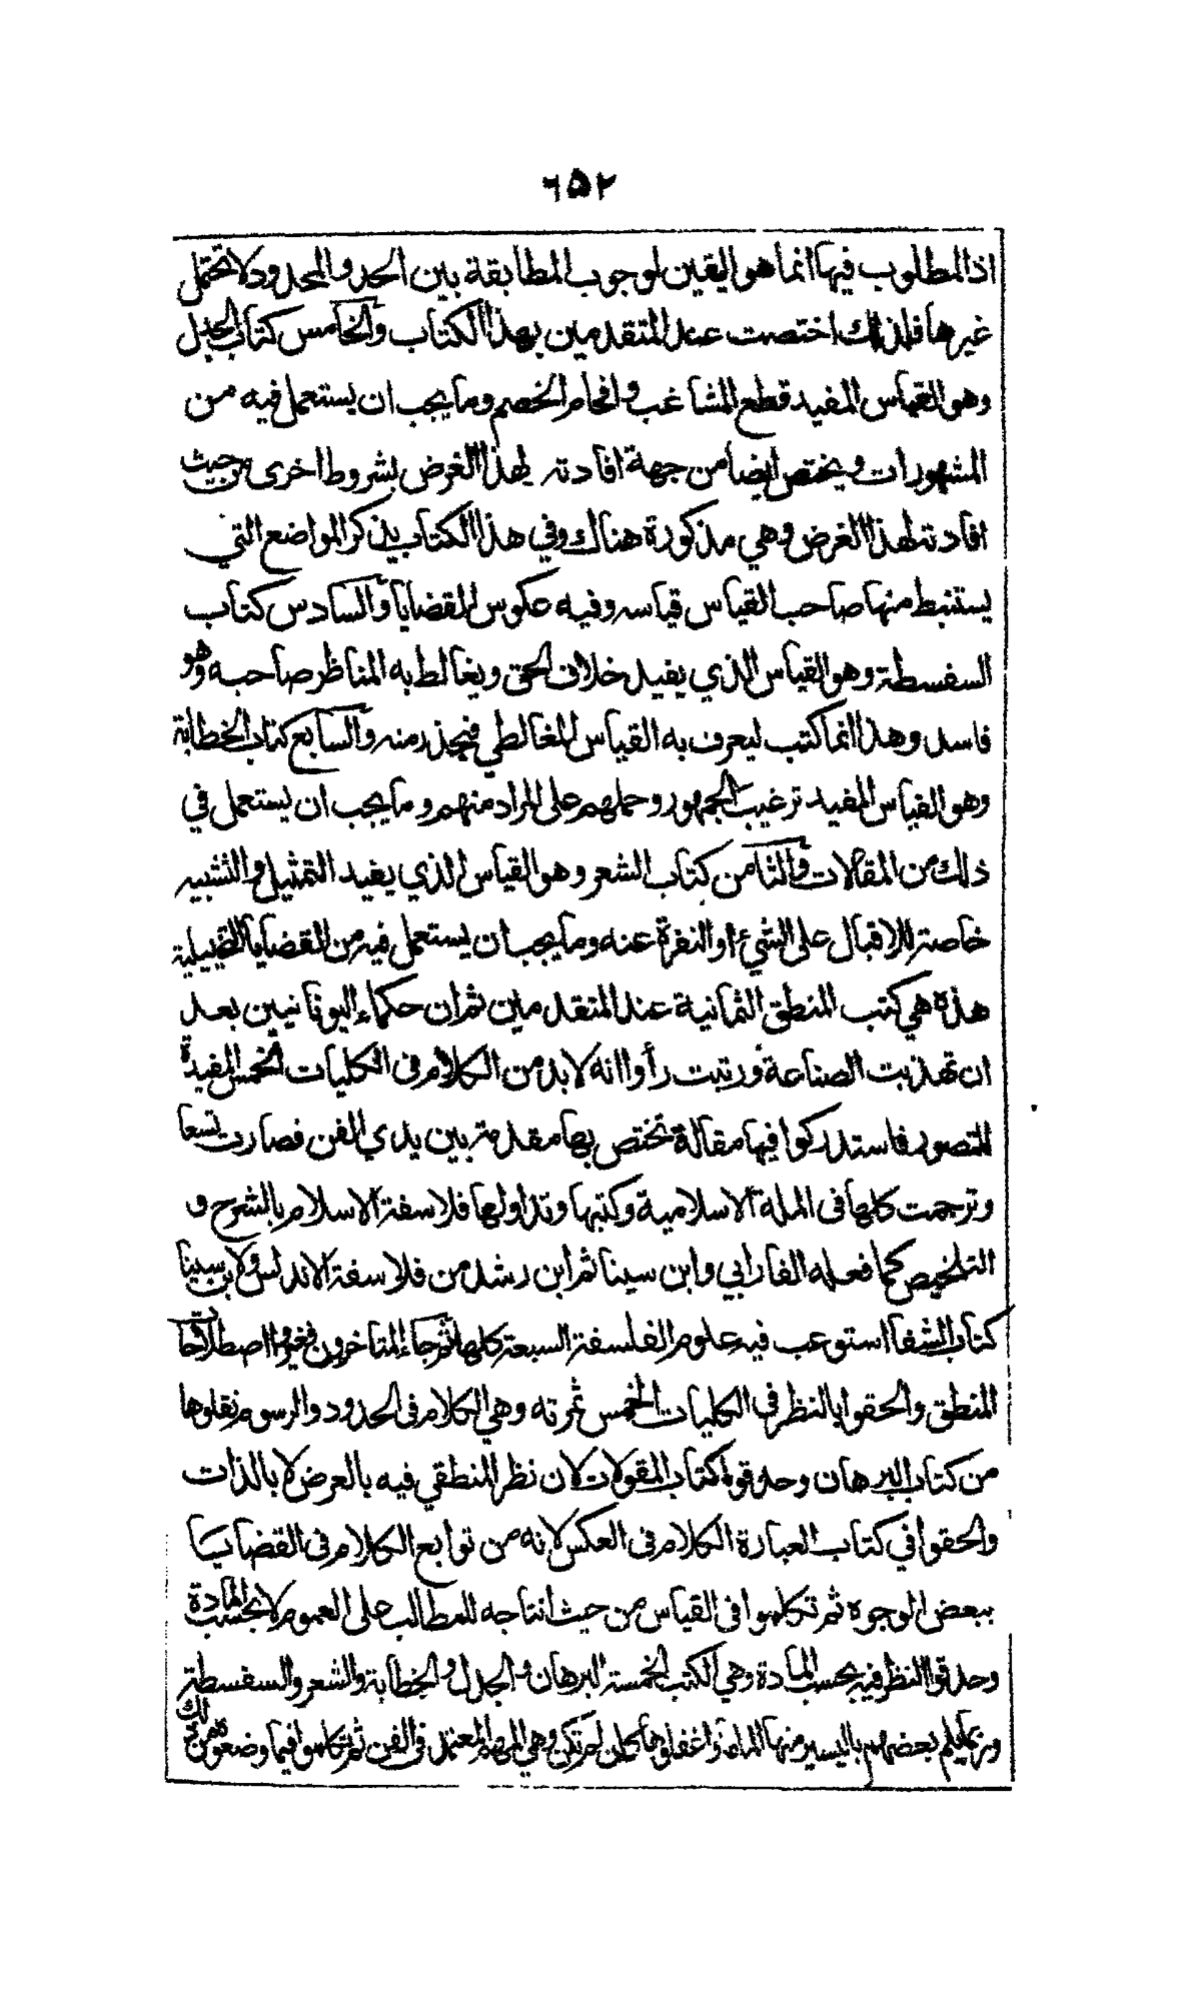 ٦٥٢
اذ المطلوب فيها انما هو اليقين لوجوب المطابقة بين الحد والمحدود لا تحتمل
غيرها فلذلك اختصت عند المتقدمين بهذا الكتاب والخامس كتاب الجدل
وهو القياس المفيد قطع المشاغب وافحام الخصم وما يجب ان يستعمل فيه من
المشهورات ويختص ايضا من جهة افادته لهذا الغرض بشروط اخرى من حيث
افادته لهذا الغرض وهي مذكورة هناك وفي هذا الكتاب يذكر المواضع التي
يستنبط منها صاحب القياس قياسه وفيه عكوس القضايا والسادس كتاب
السفسطة وهو القياس الذي يفيد خلاف الحق ويغالط به المناظر صاحبه وهو
فاسد وهذا انما كتب ليعرف به القياس المغالطي فيحذر منه والسابع كتاب الخطابة
وهو القياس المفيد ترغيب الجمهور وحملهم على المراد منهم وما يجب ان يستعمل في
ذلك من المقالات والثامن كتاب الشعر وهو القياس الذي يفيد التمثيل والتشبيه
خاصة للاقبال على الشيء او النفرة عنه وما يجب ان يستعمل فيه من القضايا التخييلية
هذه هي كتب المنطق الثمانية عند المتقدمين ثم ان حكماء اليونانيين بعد
ان تهذبت الصناعة ورتبت رأوا انه لا بد من الكلام فى الكليات الخمس المفيدة
للتصور فاستدركوا فيها مقالة تختص بها مقدمة بين يدي الفن فصارت تسعا
وترجمت كلها فى الملة الاسلامية وكتبها وتداولها فلاسفة الاسلام بالشرح و
التلخيص كما فعله الفارابي وابن سينا ثم ابن رشد من فلاسفة الاندلس ولابن سينا
كتاب الشفا استوعب فيه علوم الفلسفة السبعة كلها ثم جاء المتاخرون فغيروا اصطلاحات
المنطق والحقوا بالنظر فى الكليات الخمس ثمرته وهي الكلام فى الحدود والرسوم نقلوها
من كتاب البرهان وحذفوا كتاب المقولات لان نظر المنطقي فيه بالعرض لا بالذات
والحقوا في كتاب العبارة الكلام فى العكس لانه من توابع الكلام فى القضايا
ببعض الوجوه ثم تكلموا فى القياس من حيث انتاجه للمطالب على العموم لا بحسب المادة
وحذفوا النظر فيه بحسب المادة وهي الكتب الخمسة البرهان والجدل والخطابة والشعر والسفسطة
وربما يلم بعضهم باليسير منها الماما واغفلوها كان لم تكن وهي المهم المعتمد فى الفن ثم تكلموا فيما وضعوه من ذلك